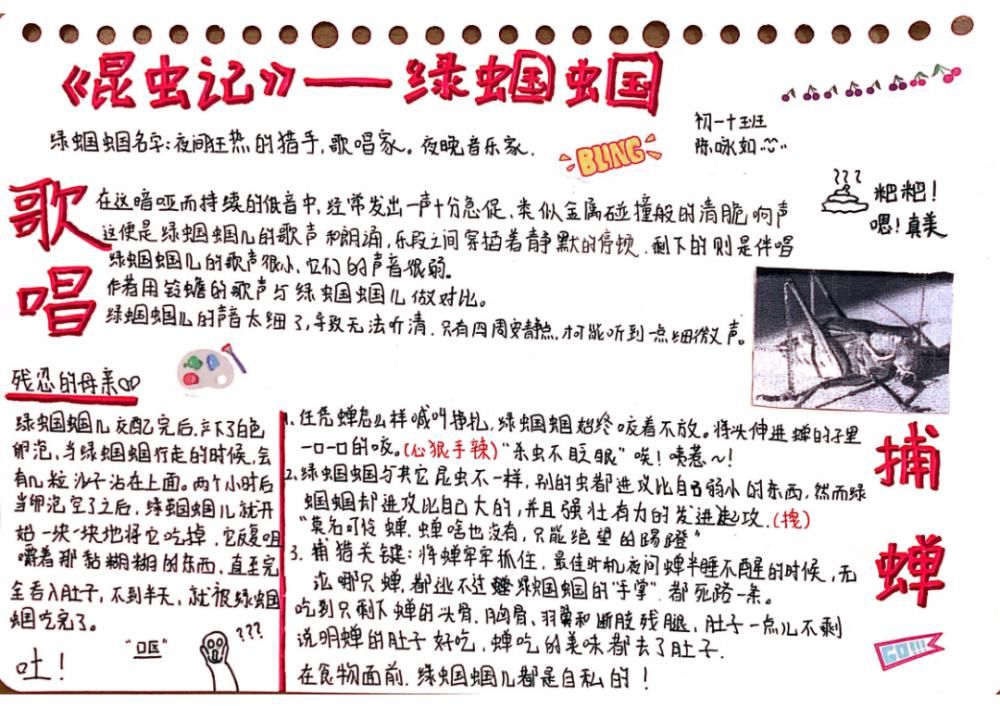 《昆虫记》——绿蝈国虫国
绿蝈蝈名字：夜间狂热的猎手，歌唱家。夜晚音乐家.
BLING
初一十班
陈咏如
???
粑粑！
嗯！真美
歌唱
在这喑哑而持续的低音中，经常发出一声十分急促、类似金属碰撞般的清脆响声
这便是绿蝈蝈儿的歌声和朗诵，乐段之间穿插着静默的停顿，剩下的则是伴唱
绿蝈蝈儿的歌声很小，它们的声音很弱。
作者用铃蟾的歌声与绿蝈蝈儿做对比。
绿蝈蝈儿的声音太细了，导致无法听清.只有四周安静点，才可能听到一点细微声。
残忍的母亲
绿蝈蝈儿交配完后，产下了白色
卵泡，当绿蝈蝈行走的时候，会
有几粒沙子沾在上面。两个小时后
当卵泡空了之后，绿蝈蝈儿就开
始一块一块地将它吃掉，它反复咀
嚼着那黏糊糊的东西，直至完
全吞入肚子，不到半天，就被绿蝈
蝈吃完了。
"呕"
???
吐！
捕蝉
1.任凭蝉怎么样喊叫挣扎，绿蝈蝈始终咬着不放。将头伸进蝉的肚子里
一口一口的咬。(心狠手辣)"杀虫不眨眼"唉！咦惹~！
2.绿蝈蝈与其它昆虫不一样，别的虫都进攻比自己弱小的东西，然而绿
蝈蝈却进攻比自己大的，并且强壮有力的发进起攻.(搅)
"莫名可怜蝉，蝉啥也没有，只能绝望的踢蹬"
3.捕猎关键：将蝉牢牢抓住，最佳时机夜间蝉半睡不醒的时候，无
论哪只蝉，都逃不过绿蝈蝈的"手掌"，都死路一条。
吃到只剩下蝉的头骨、胸骨、羽翼和断肢残腿，肚子一点儿不剩
说明蝉的肚子好吃，蝉吃的美味都去了肚子.
在食物面前，绿蝈蝈儿都是自私的！
GO!!!